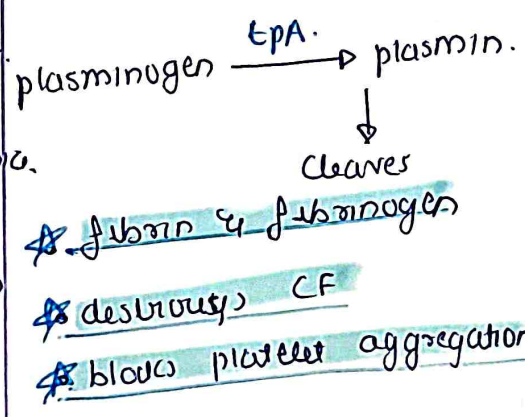 tpA.
plasminogen → plasmin.
↓
Cleaves
fibrin & fibrinogen
destroys CF
blocks platelet aggregation